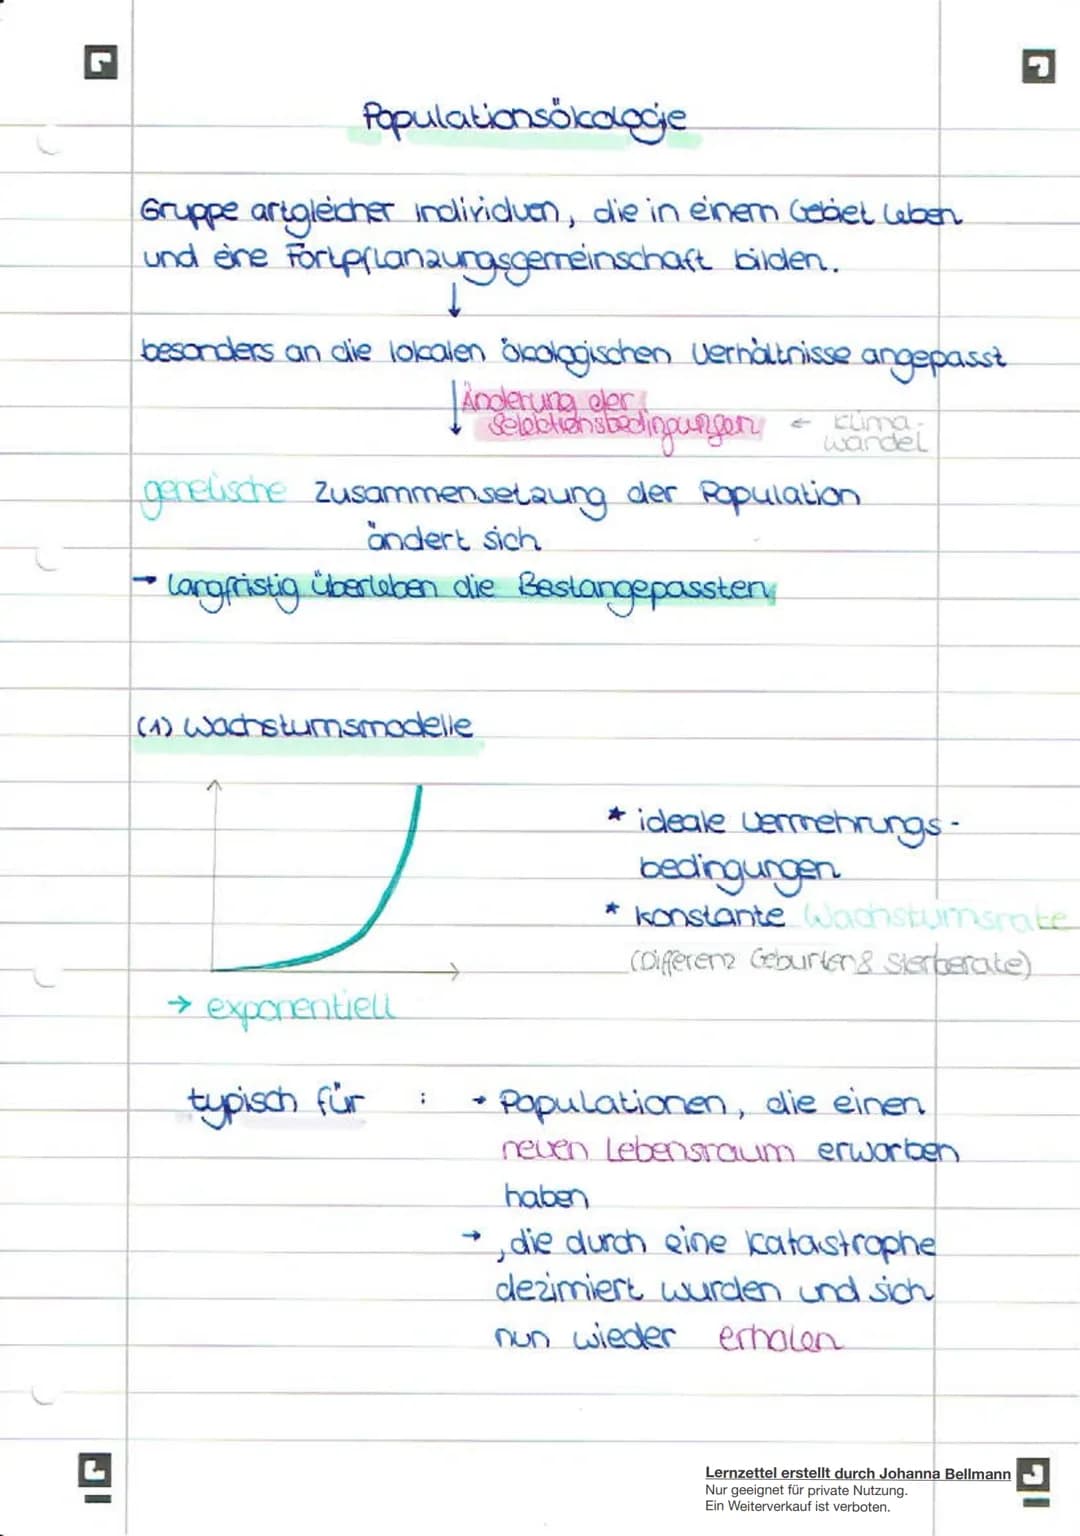 Populationsökologie
Gruppe artgleicher Individuen, die in einem Gebiet leben
und eine Fortpflanzungsgemeinschaft bilden.
↓
besonders an die lokalen ökologischen Verhältnisse angepasst
↓ Änderung der
Selektionsbedingungen ← Klima-
wandel
genetische Zusammensetzung der Population
ändert sich
→ langfristig überleben die Bestangepassten
(1) Wachstumsmodelle
* ideale Vermehrungs-
bedingungen
* konstante Wachstumsrate
(Differenz Geburten & Sterberate)
→ exponentiell
typisch für : → Populationen, die einen
neuen Lebensraum erworben
haben
→ , die durch eine Katastrophe
dezimiert wurden und sich
nun wieder erholen
Lernzettel erstellt durch Johanna Bellmann
Nur geeignet für private Nutzung.
Ein Weiterverkauf ist verboten.